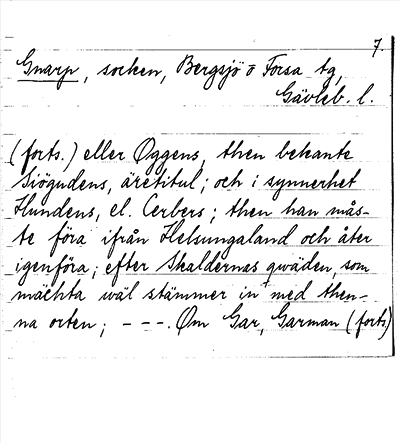 7.
Gnarp, socken, Bergsjö o Forsa tg,
Gävleb. l.
(forts.) eller Oggens, then bekante
Siögudens, äretitul; och i synnerhet
Hundens, el. Cerbers; then han mås-
te föra ifrån Helsungaland och åter
igenföra; efter Skaldernas qwäden, som
mächta wäl stämmer in med then-
na orten; - - -. Om Gar, Garman (forts)